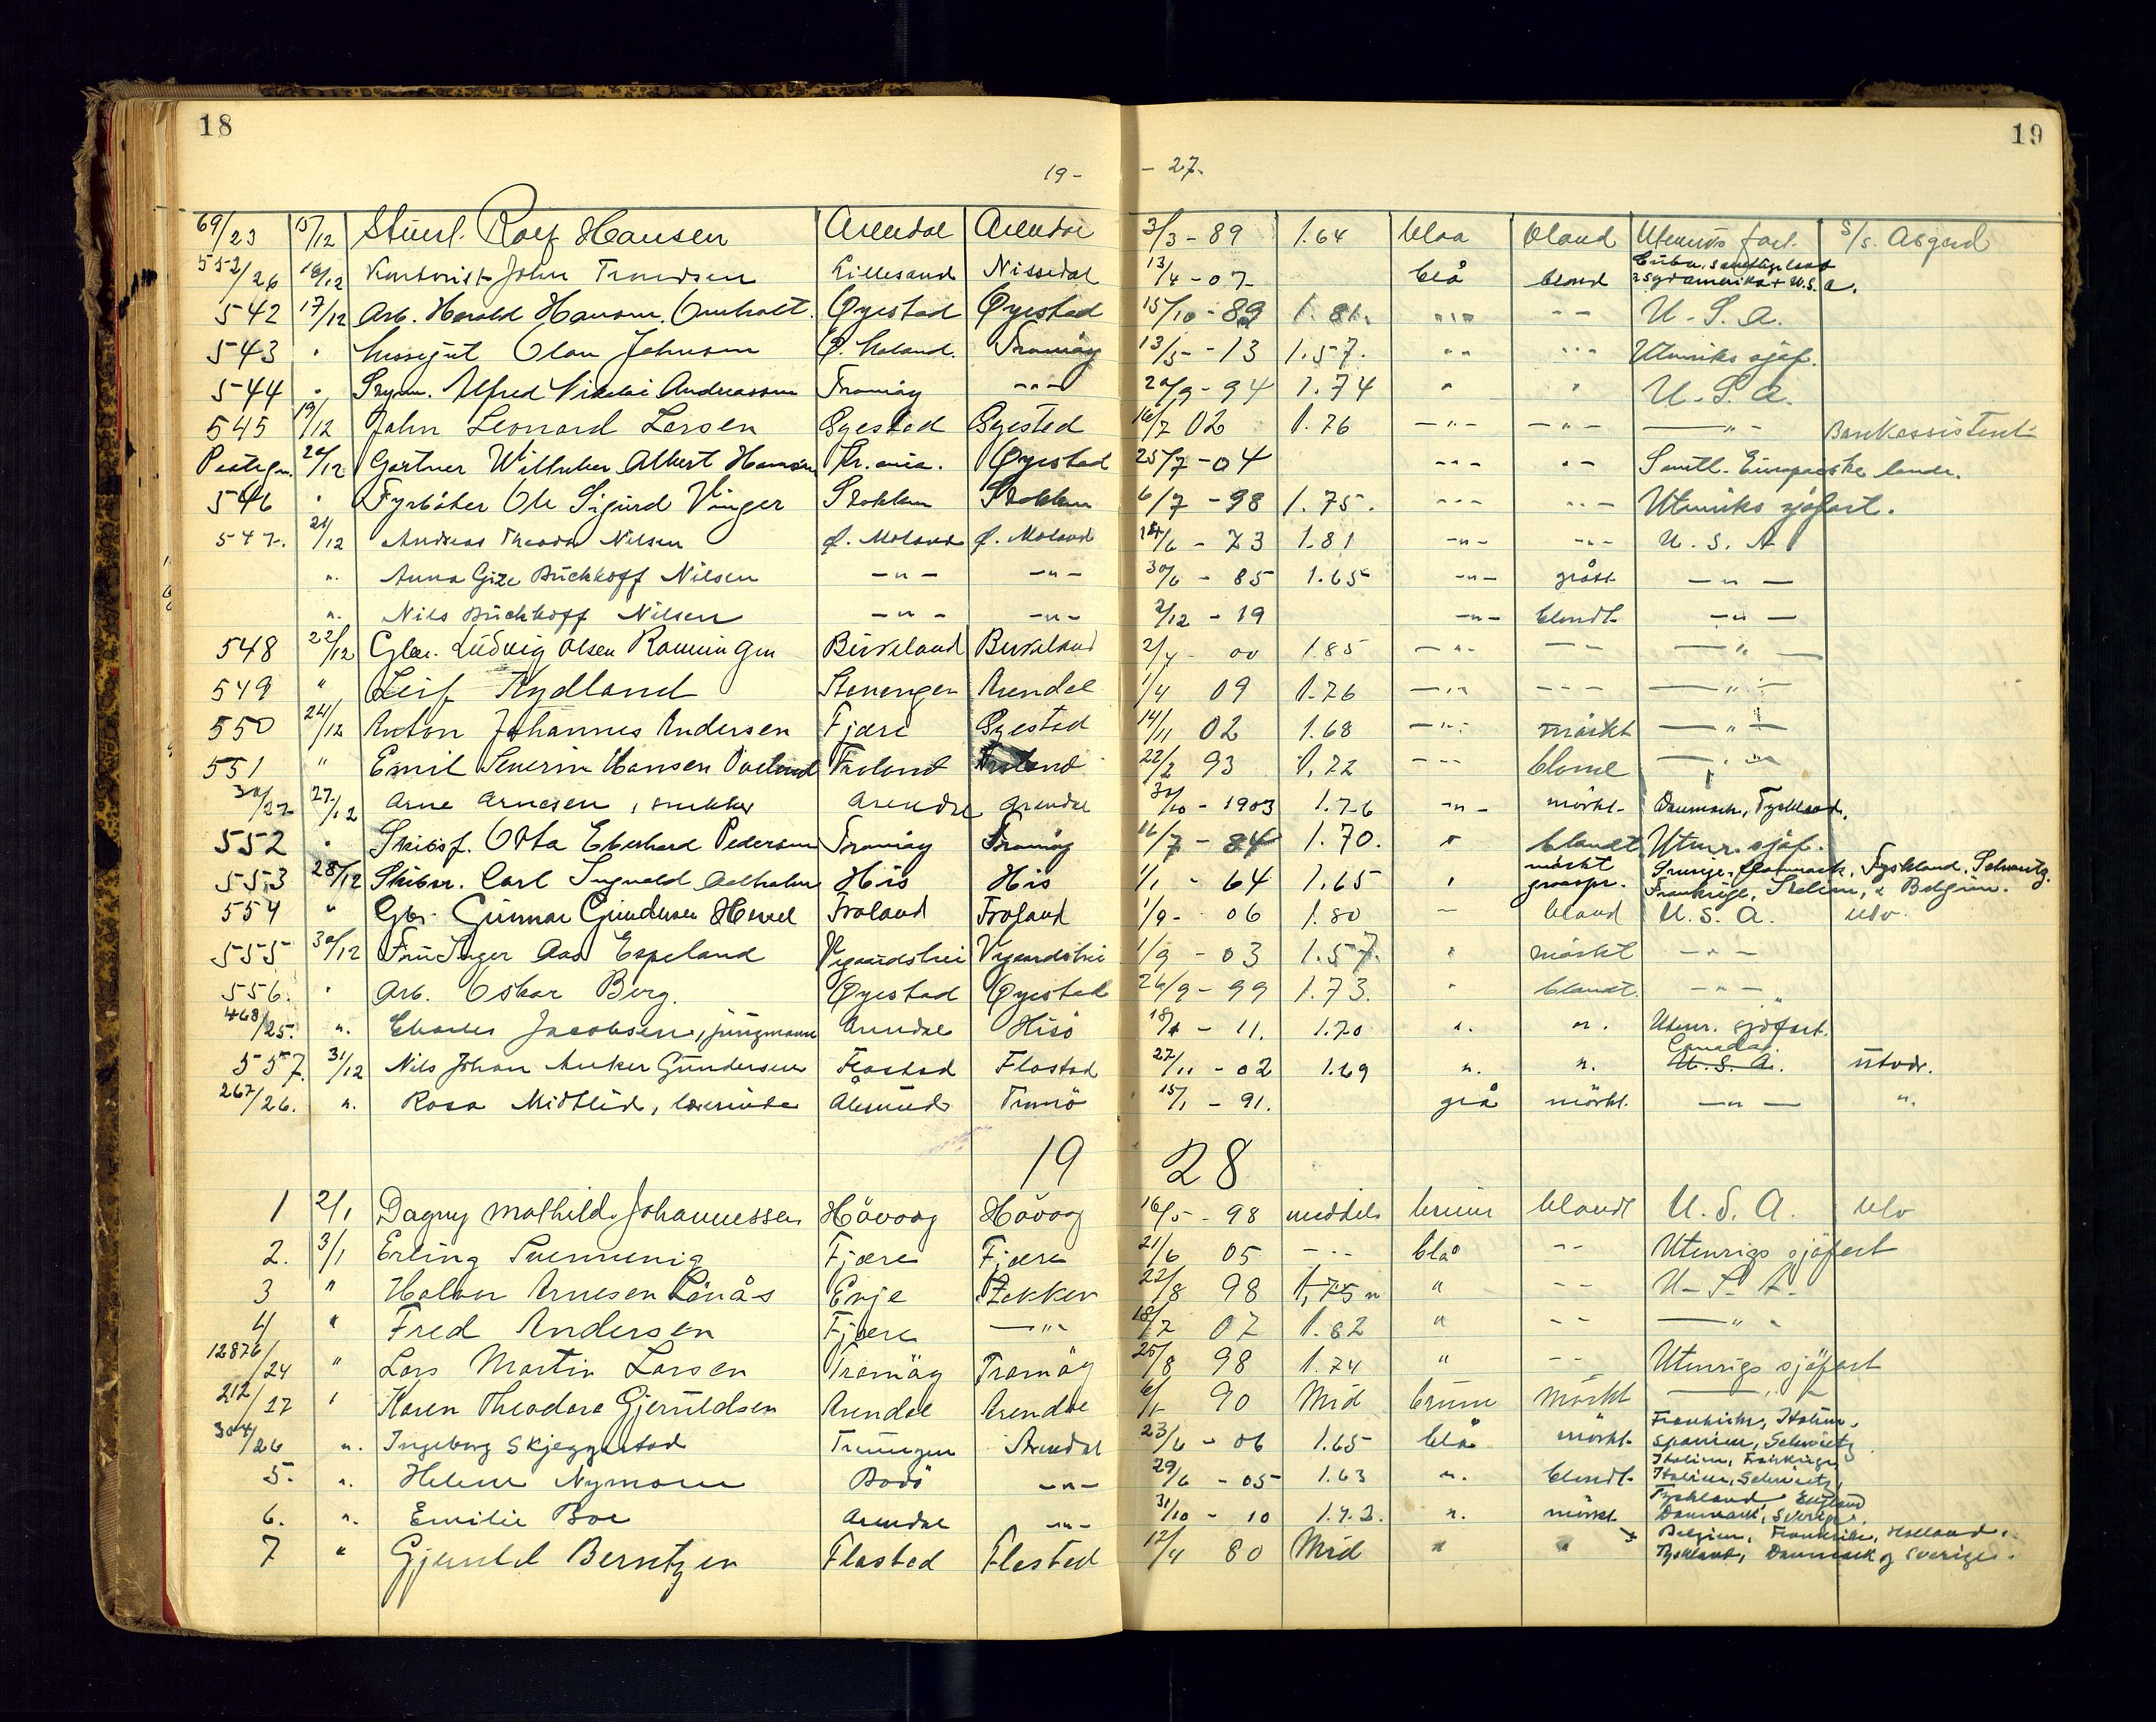 18 19
19- - 27.
69/23 15/12 Stuerl. Rolf Hansen Arendal Arendal 3/3 - 89 1.64 blaa blond Utenriks fart. S/s. Asgerd
552/26 16/12 Kontorist John Trondsen Lillesand Nissedal 13/4 - 07- blå blond Cuba, samtlige land i Sydamerika + U.S.A.
542 17/12 Arb. Harald Hansen Omholt. Øyestad Øyestad 15/10 - 89 1.81. -"- -- U.S.A.
543 " Olav Johnsen Ø. Moland. Tromøy 13/5 - 13 1.57. -- -"- Utenriks sjøf.
544 " Alfred Nikolai Andreassen Tromøy -"- 20/9 - 94 1.74 " " U.S.A.
545 19/12 John Leonard Larsen Øyestad Øyestad 16/7 02 1.76 -"- -"- -"- Bankassistent
20/12 Gartner Wilhelm Albert Hansen Kr.ania. Øyestad 25/7 - 04 -"- -- Samtl. Europæiske lande.
546 " Fyrbøter Ole Sigurd Vinger Stokken Stokken 6/7 - 98 1.75. -"- -"- Utenriks sjøfart.
547. 21/12 Andreas Theodor Nilsen Ø. Moland Ø. Moland 18/6 - 73 1.81 -"- -"- U.S.A
". Anna Gize Buchhoff Nilsen -"- -"- 30/6 - 85 1.65 -"- grått -"-
". Nils Buchhoff Nilsen -"- -"- 2/12 - 19 -"- blondt -"-
548 22/12 Gbr. Ludvig Olsen Rønningen Birkeland Birkeland 2/4 - 00 1.85 -"- -- -"-
549 " Leif Rydland Stavanger Arendal 1/4 09 1.76 -"- --- -"-
550 24/12 Anton Johannes Andersen Fjære Øyestad 14/11 02 1.68 -"- mörkt -"-
551 " Emil Severin Hansen Froland Froland 22/2 93 1,72 --- -"-
30/27 27/12 Arne Arnesen, snekker Arendal Arendal 30/10 - 1903 1.76 -"- mörkt. Danmark, Tyskland.
552 " Skibsf. Otto Eberhard Pedersen Tromøy Tromøy 16/7 - 84 1.70. " blondt Utenr. sjøf.
553 28/12 Skibsr. Carl Ingvald Aalholm His His 1/1 - 64 1.65 " mörkt graaspr. Sverige, Danmark, Tyskland, Schweitz, Frankrige, Italien, & Belgien.
554 " Gbr. Gunnar Gundersen Froland Froland 1/9 - 06 1.80 - blond U.S.A. utv.
555 30/12 Fru Inger Aas Espeland Vegaardshei Vegaardshei 1/9 - 03 1.57. " mörkt -"-
556. " Arb. Oskar Berg. Øyestad Øyestad 26/9 - 99 1.73. " blondt. -"-
468/25. ". Charles Jacobsen, jungmann Arendal Hisö 18/4 - 11. 1.70 ". ". Utenr. sjöfart.
557. 31/12 Nils Johan Anker Gundersen Flostad Flostad 27/11 - 02 1.69 ". ". Canada U.S.A. utvdr.
267/26. ". Rosa Midtlid, lærerinde Ålesund Tromö 15/1 - 91. grå mörkt. -"- ".
19 28
1 2/1 Dagny Mathilde Johannessen Hövaag Hövaag 16/5 - 98 middels brune blondt U.S.A. utv
2. 3/1 Erling Svennevig Fjære Fjære 21/6 05 -"- blå -- Utenrigs sjøfart
3 " Halvor Arnesen Lönås Evje 22/8 98 1,75 " " -- U.S.A.
4 " Fred Andersen Fjære -"- 18/7 07 1.82 " -- -"-
12876/24 " Lars Martin Larsen Tromöy Tromöy 25/8 98 1.74 " -- Utenrigs sjøfart
212/27 " Karen Theodora Gjeruldsen Arendal Arendal 6/1 90 Mid brune Mörkt -"-
304/26 ". Ingeborg Skjeggestad Arendal 23/6 - 06 1.65 blå mörkt. Frankrike, Italien, Spanien, Schweitz
5. ". Helene Nymann Bodö -"- 29/6 - 05 1.63 ". blondt. Italien, Frankrige, Italien, Schweitz,
6. ". Emilie Boe Arendal -"- 31/10 - 10 1.72. ". mörkt. Tyskland, England Danmark, Sverige.
7 " Gjeruld Berntzen Flosted Flosted 12/4 80 Mid " " + Belgien, Frankrike, Holland, Tyskland, Danmark og Sverige.